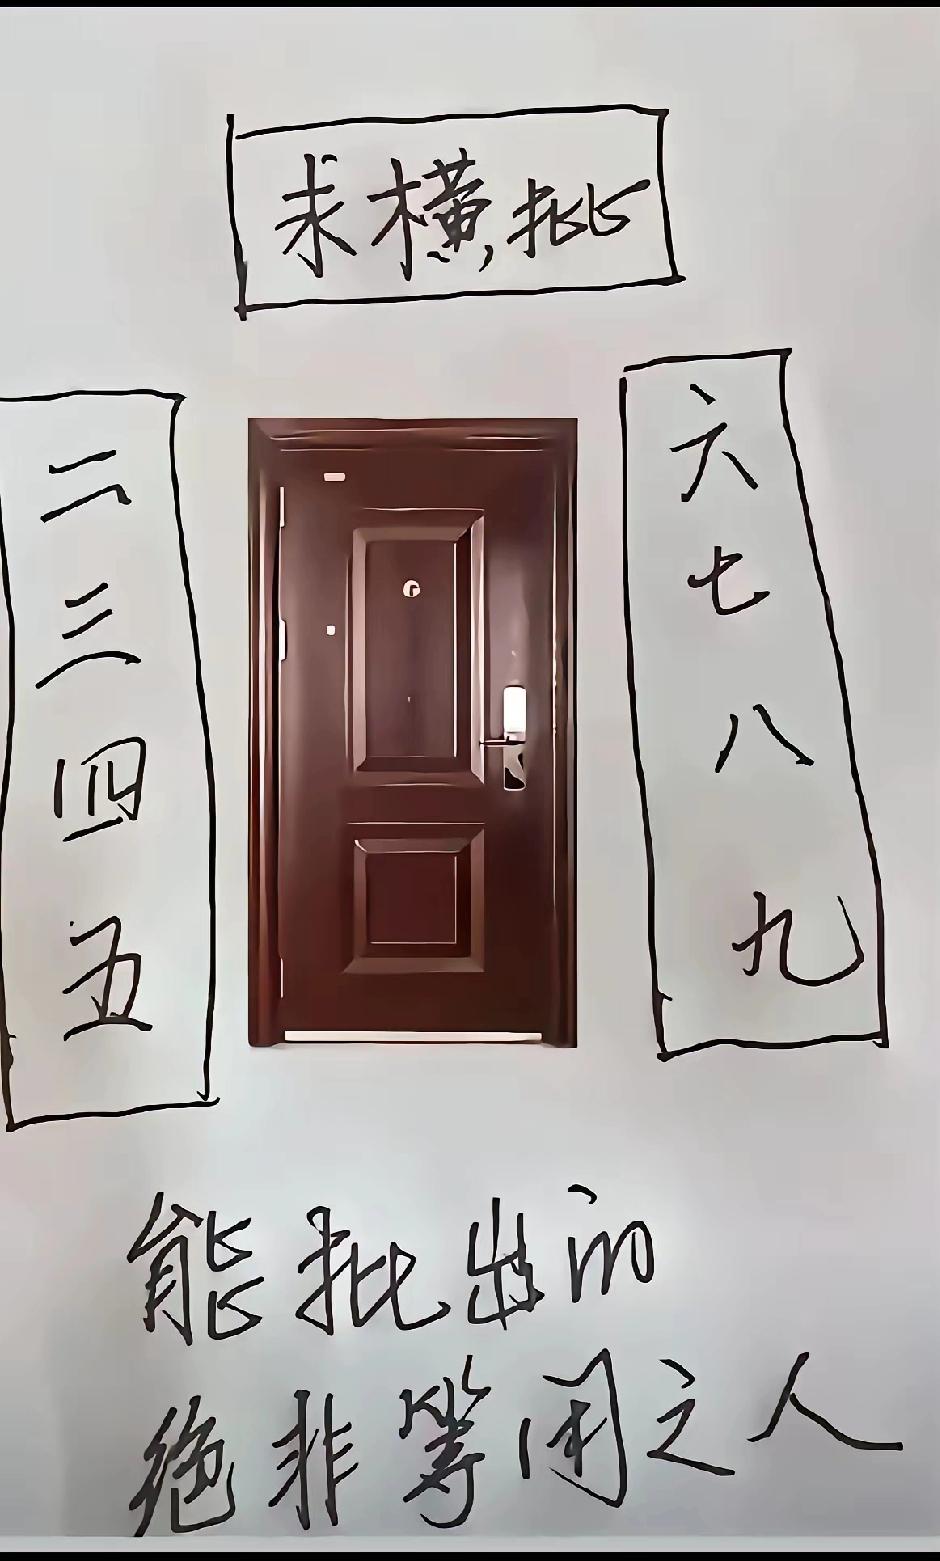 求横批
二三四五
六七八九
能批出的
绝非等闲之人